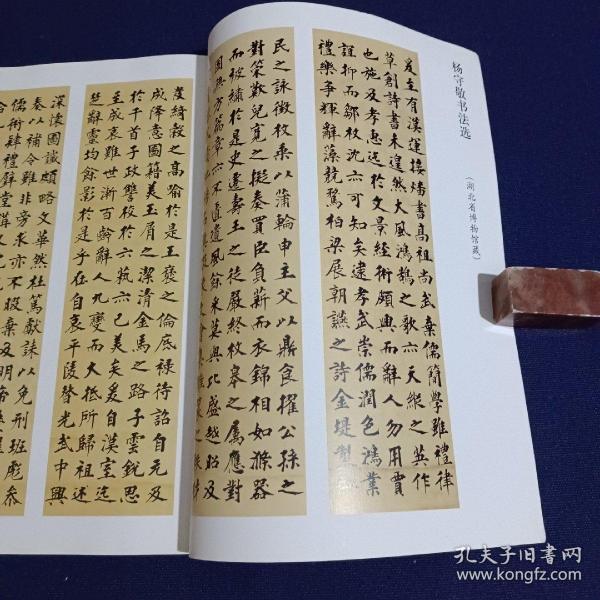 杨守敬书法选
（湖北省博物馆藏）
爰至有漢運接燔書高祖尚武棄儒簡學雖禮律
草創詩書未遑然大風鴻鵠之歌亦天縱之英作
也施及孝惠迄於文景經術頗興而辭人勿用賈
誼抑而鄒枚沈亦可知矣逮孝武崇儒潤色鴻業
禮樂爭輝辭藻競騖柏梁展朝讌之詩金堤製
民之詠徵枚乘以蒲輪申主父以鼎食擢公孫之
對策歎兒寬之擬奏買臣負薪而衣錦相如滌器
而被繡於是史遷壽王之徒嚴終枚皋之屬應對
固無方篇章亦不匱遺風餘采莫與比盛越昭及
度綺縠之高喻於是王褒之倫底祿待詔自元及
成降意圖籍美玉屑之潔清金馬之路子雲銳思
於千首子政讐校於六蓺亦已美矣爰自漢室迄
至成哀雖世漸百齡辭人九變而大抵所歸祖述
楚辭靈均餘影於是乎在自哀平陵替光武中興
深懷圖讖頗略文華然杜篤獻誄以免刑班彪參
奏以補令雖非旁求亦不遐棄及明
儒術肄禮璧堂講
孔夫子旧书网
www.kongfz.com